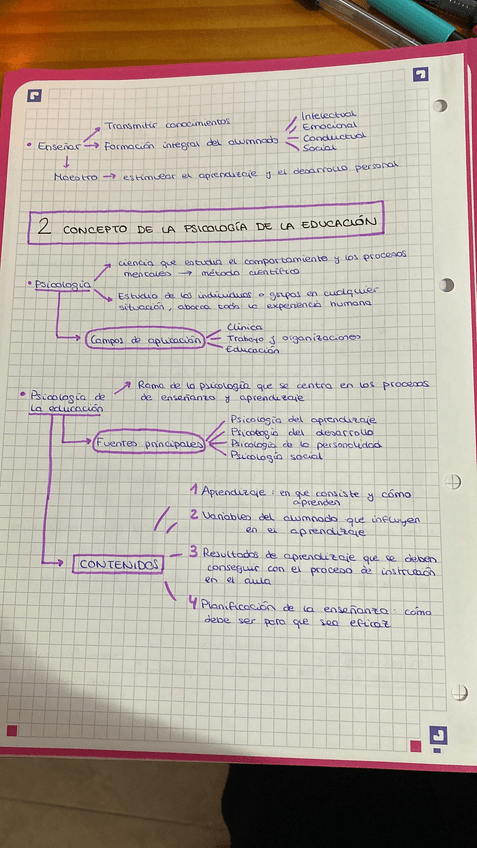 Transmitir conocimientos
• Enseñar → Formación integral del alumnado
Intelectual
Emocional
Conductual
Social
Maestro → estimular el aprendizaje y el desarrollo personal
2 CONCEPTO DE LA PSICOLOGÍA DE LA EDUCACIÓN
• Psicología
ciencia que estudia el comportamiento y los procesos
mentales → método científico
Estudio de los individuos o grupos en cualquier
situación, abarca toda la experiencia humana
Campos de aplicación
Clínica
Trabajo y organizaciones
Educación
• Psicología de
la educación
Rama de la psicología que se centra en los procesos
de enseñanza y aprendizaje
Fuentes principales
Psicología del aprendizaje
Psicología del desarrollo
Psicología de la personalidad
Psicología social
CONTENIDOS
1 Aprendizaje : en que consiste y cómo
aprenden
2 Variables del alumnado que influyen
en el aprendizaje
3 Resultados de aprendizaje que se deben
conseguir con el proceso de instrucción
en el aula
4 Planificación de la enseñanza : cómo
debe ser para que sea eficaz